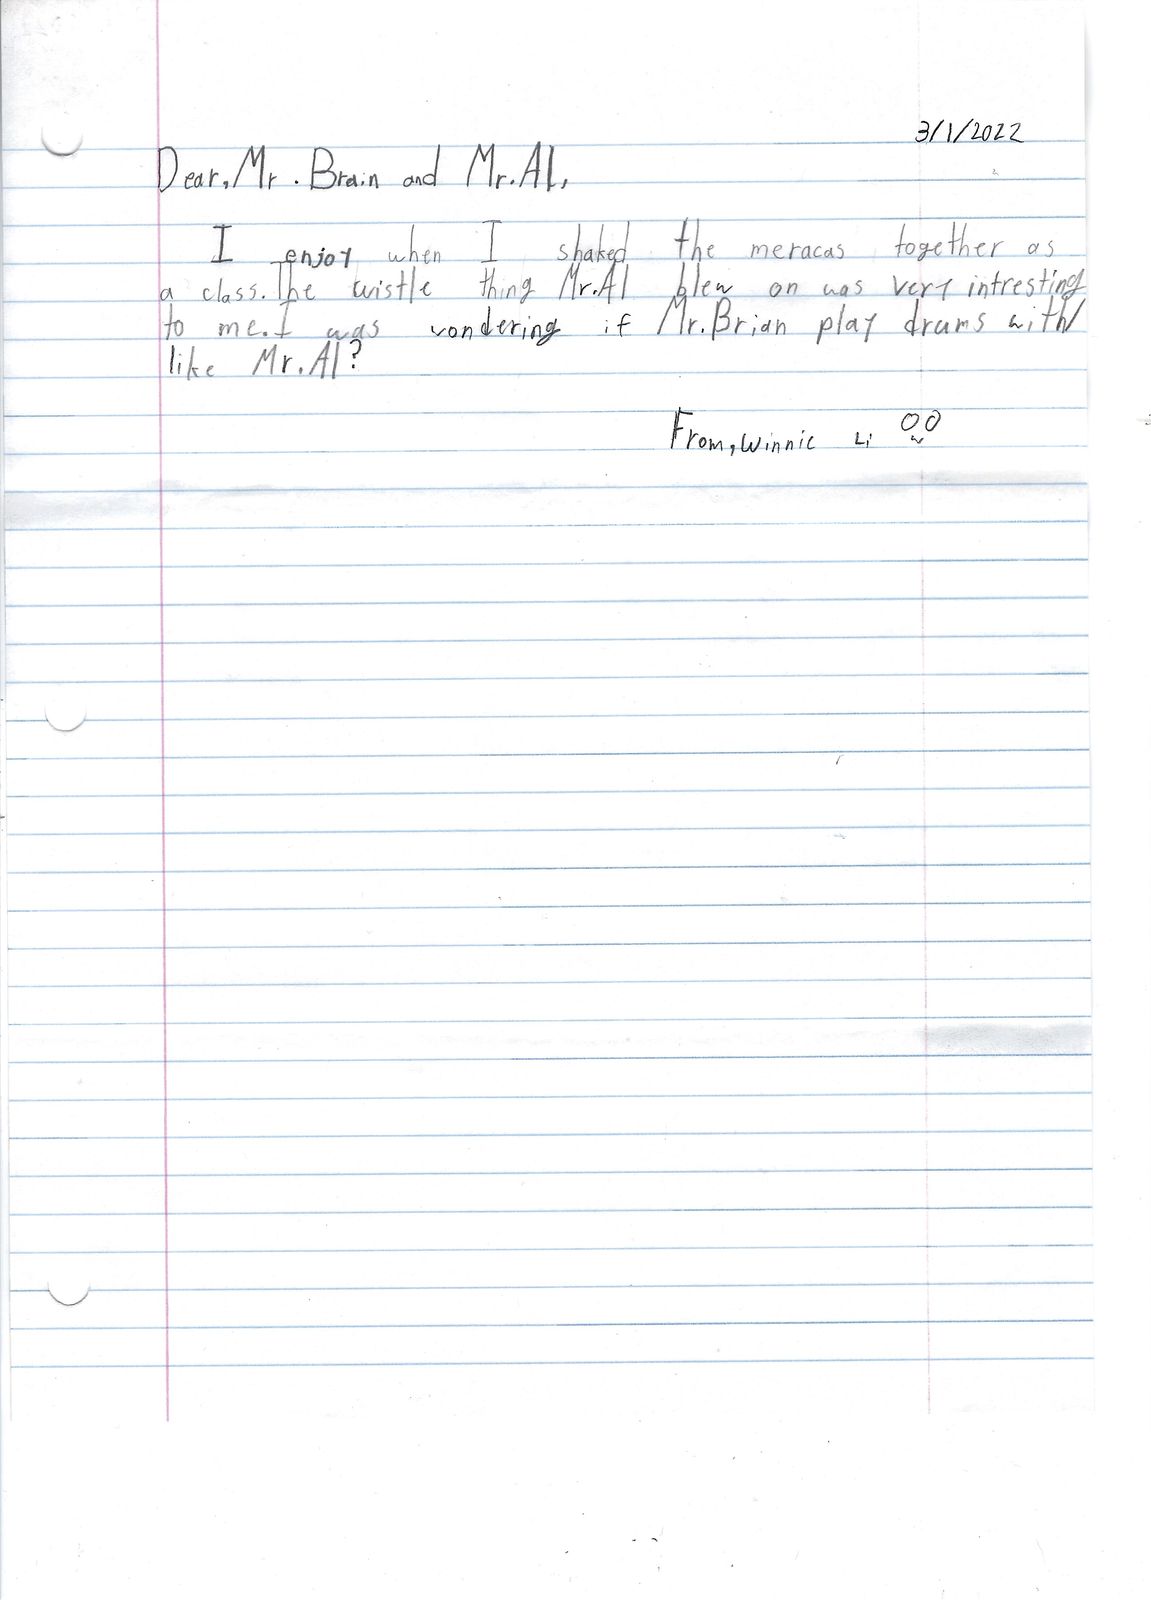 3/1/2022
Dear, Mr. Brain and Mr. Al,
I enjoy when I shaked the meracas together as
a class. The wistle thing Mr. Al blew on was very intresting
to me. I was wondering if Mr. Brian play drums with/
like Mr. Al?
From, Winnie Li